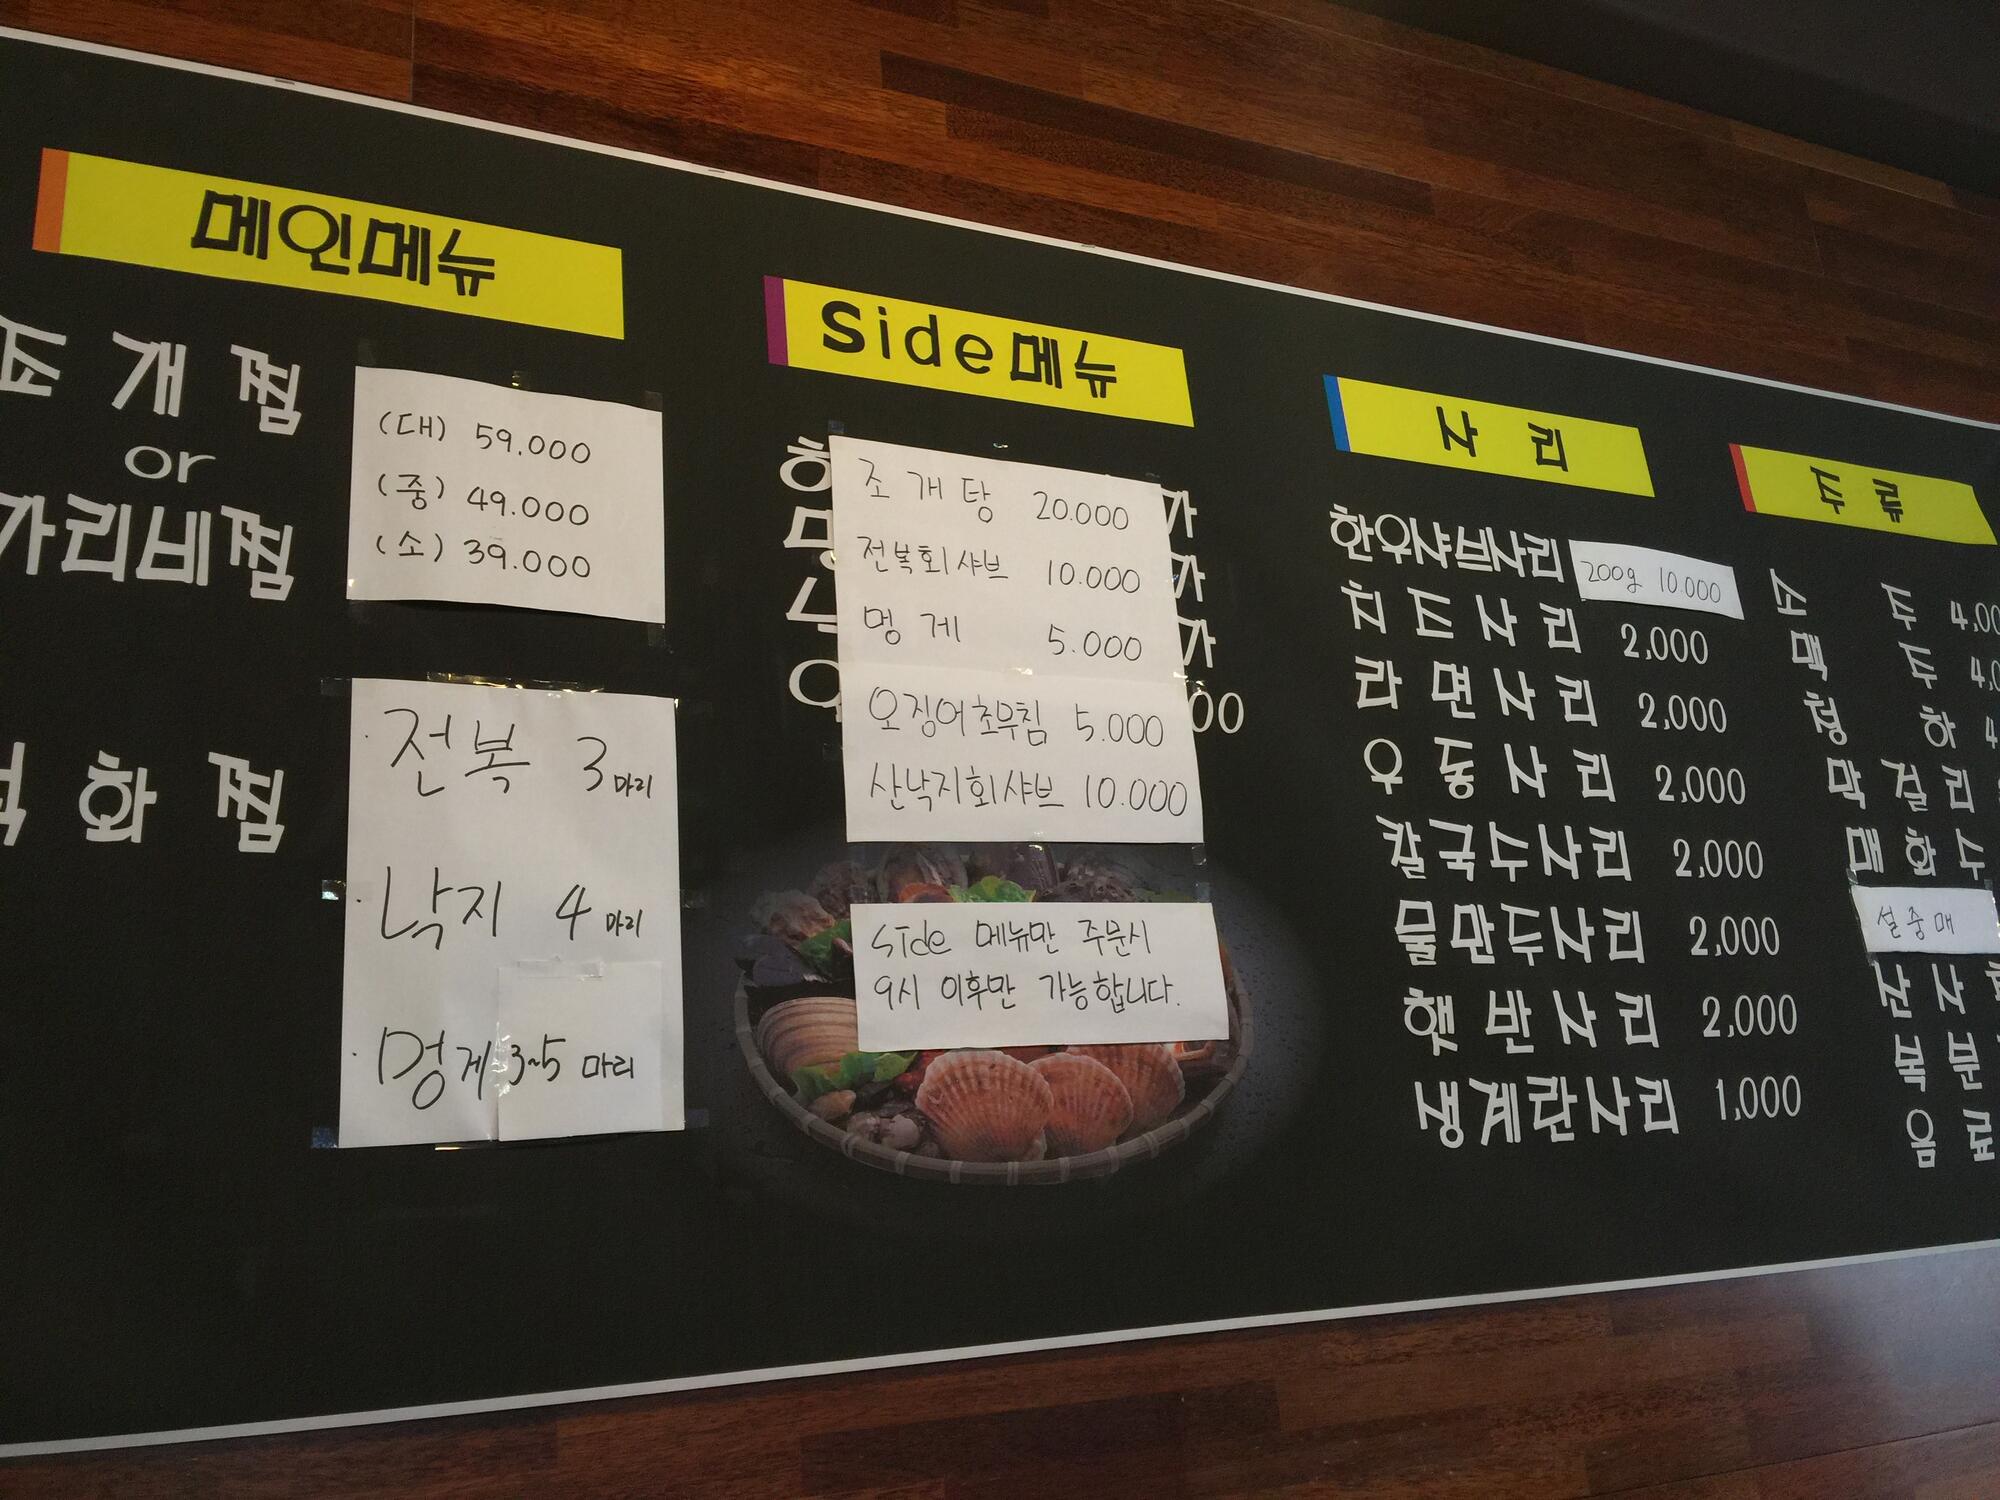 메인메뉴
조개찜
or
가리비찜
(대) 59.000
(중) 49.000
(소) 39.000
석화찜
전복 3마리
낙지 4마리
멍게 3~5 마리
Side메뉴
조개탕 20.000
전복회샤브 10.000
멍게 5.000
오징어초무침 5.000
산낙지회샤브 10.000
side 메뉴만 주문시
9시 이후만 가능합니다.
사리
한우샤브사리 200g 10.000
치즈사리 2,000
라면사리 2,000
우동사리 2,000
칼국수사리 2,000
물만두사리 2,000
햇반사리 2,000
생계란사리 1,000
주류
소주
맥주
청하
막걸리
매화수
설중매
산사
복분
음료